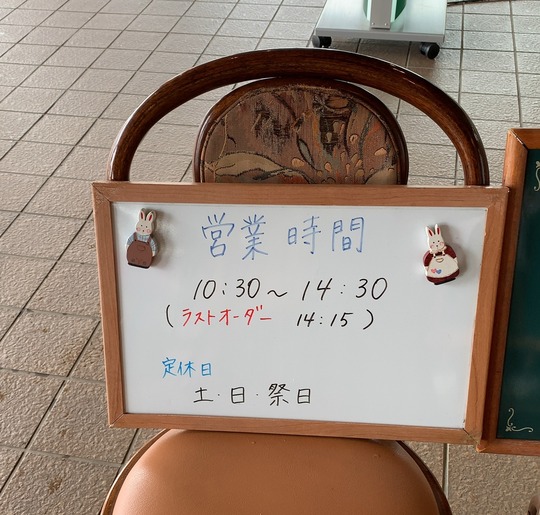 営業時間
10:30〜14:30
(ラストオーダー 14:15)
定休日
土・日・祭日